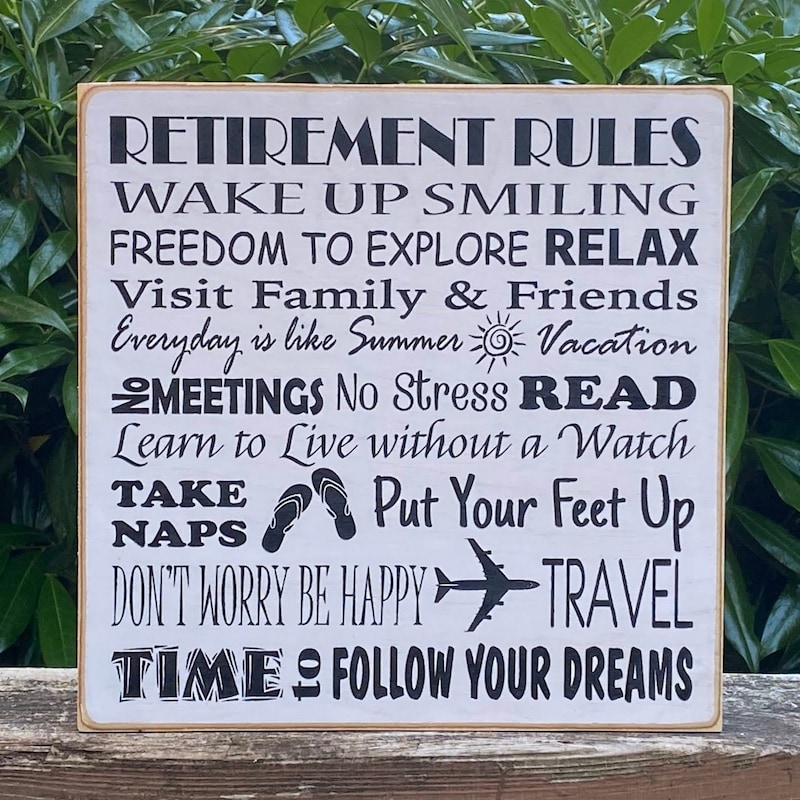 RETIREMENT RULES
WAKE UP SMILING
FREEDOM TO EXPLORE RELAX
Visit Family & Friends
Everyday is like Summer Vacation
No MEETINGS No Stress READ
Learn to Live without a Watch
TAKE NAPS Put Your Feet Up
DON'T WORRY BE HAPPY TRAVEL
TIME to FOLLOW YOUR DREAMS